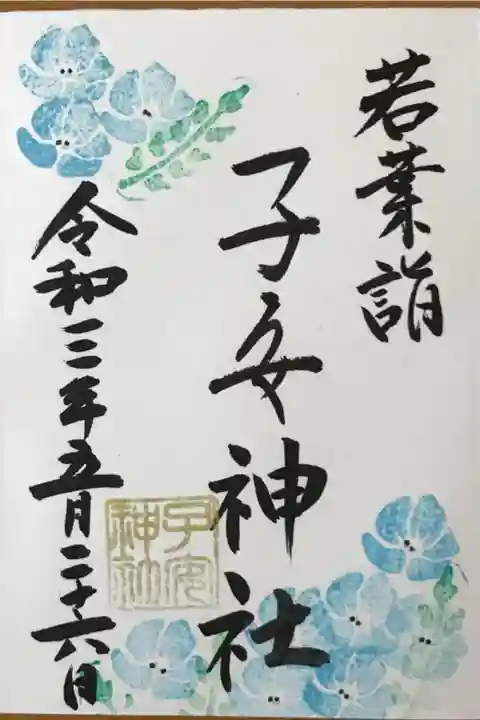 若葉詣
子安神社
子安
神社
令和三年五月二十六日